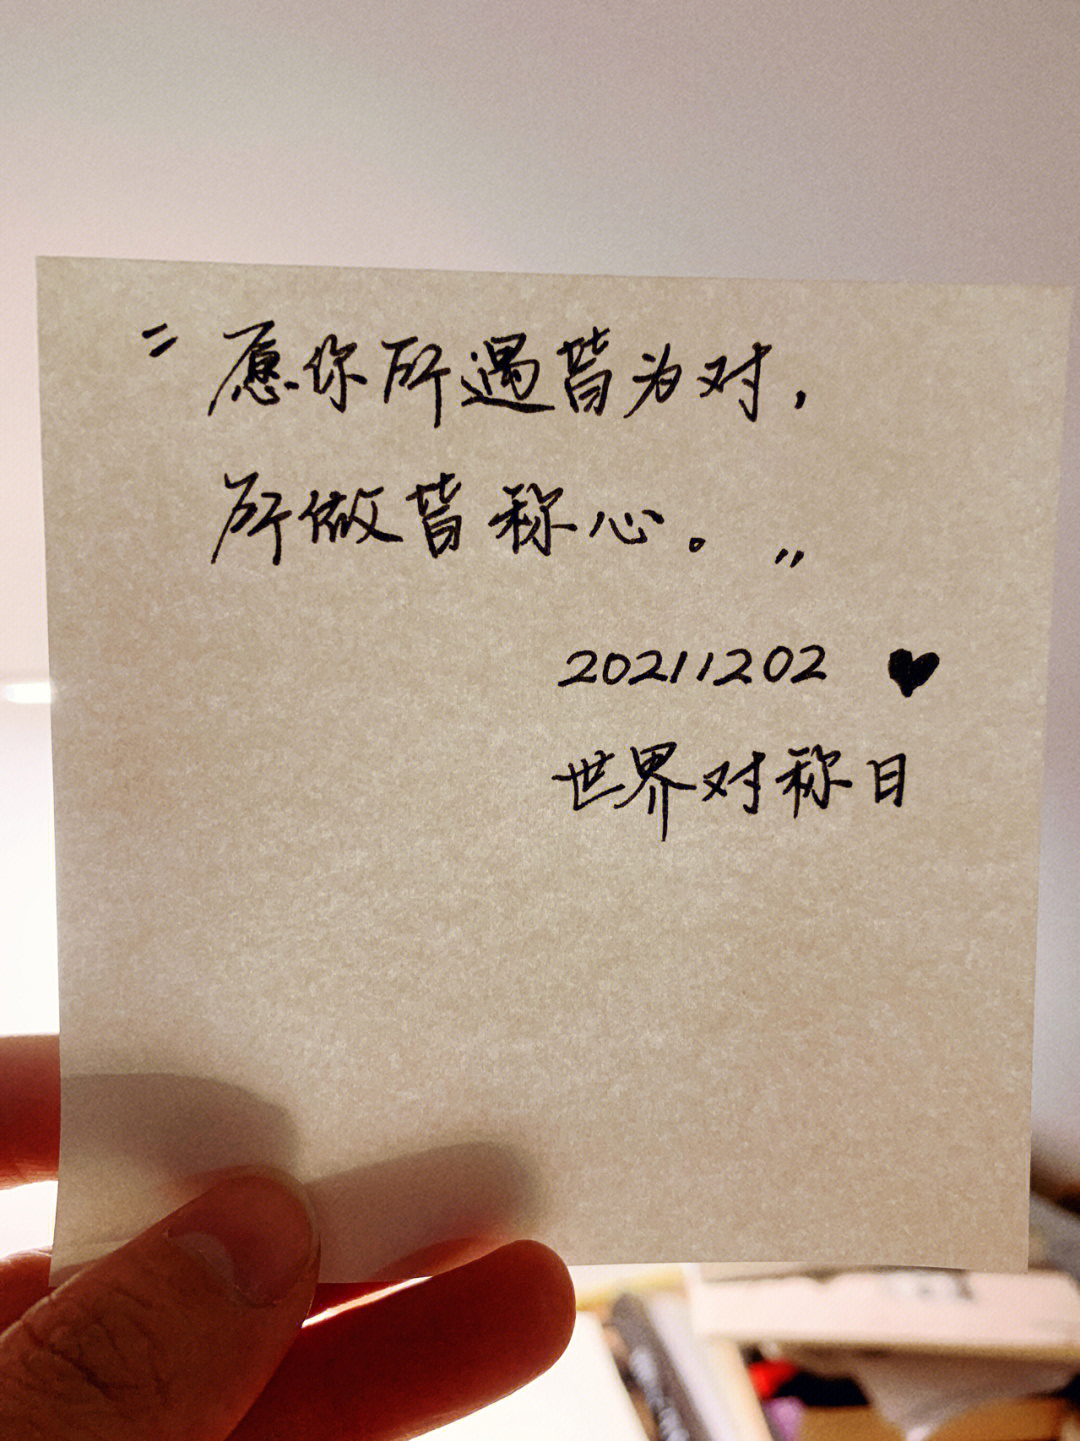 "愿你所遇皆为对，
所做皆称心。"
20211202 ♥
世界对称日